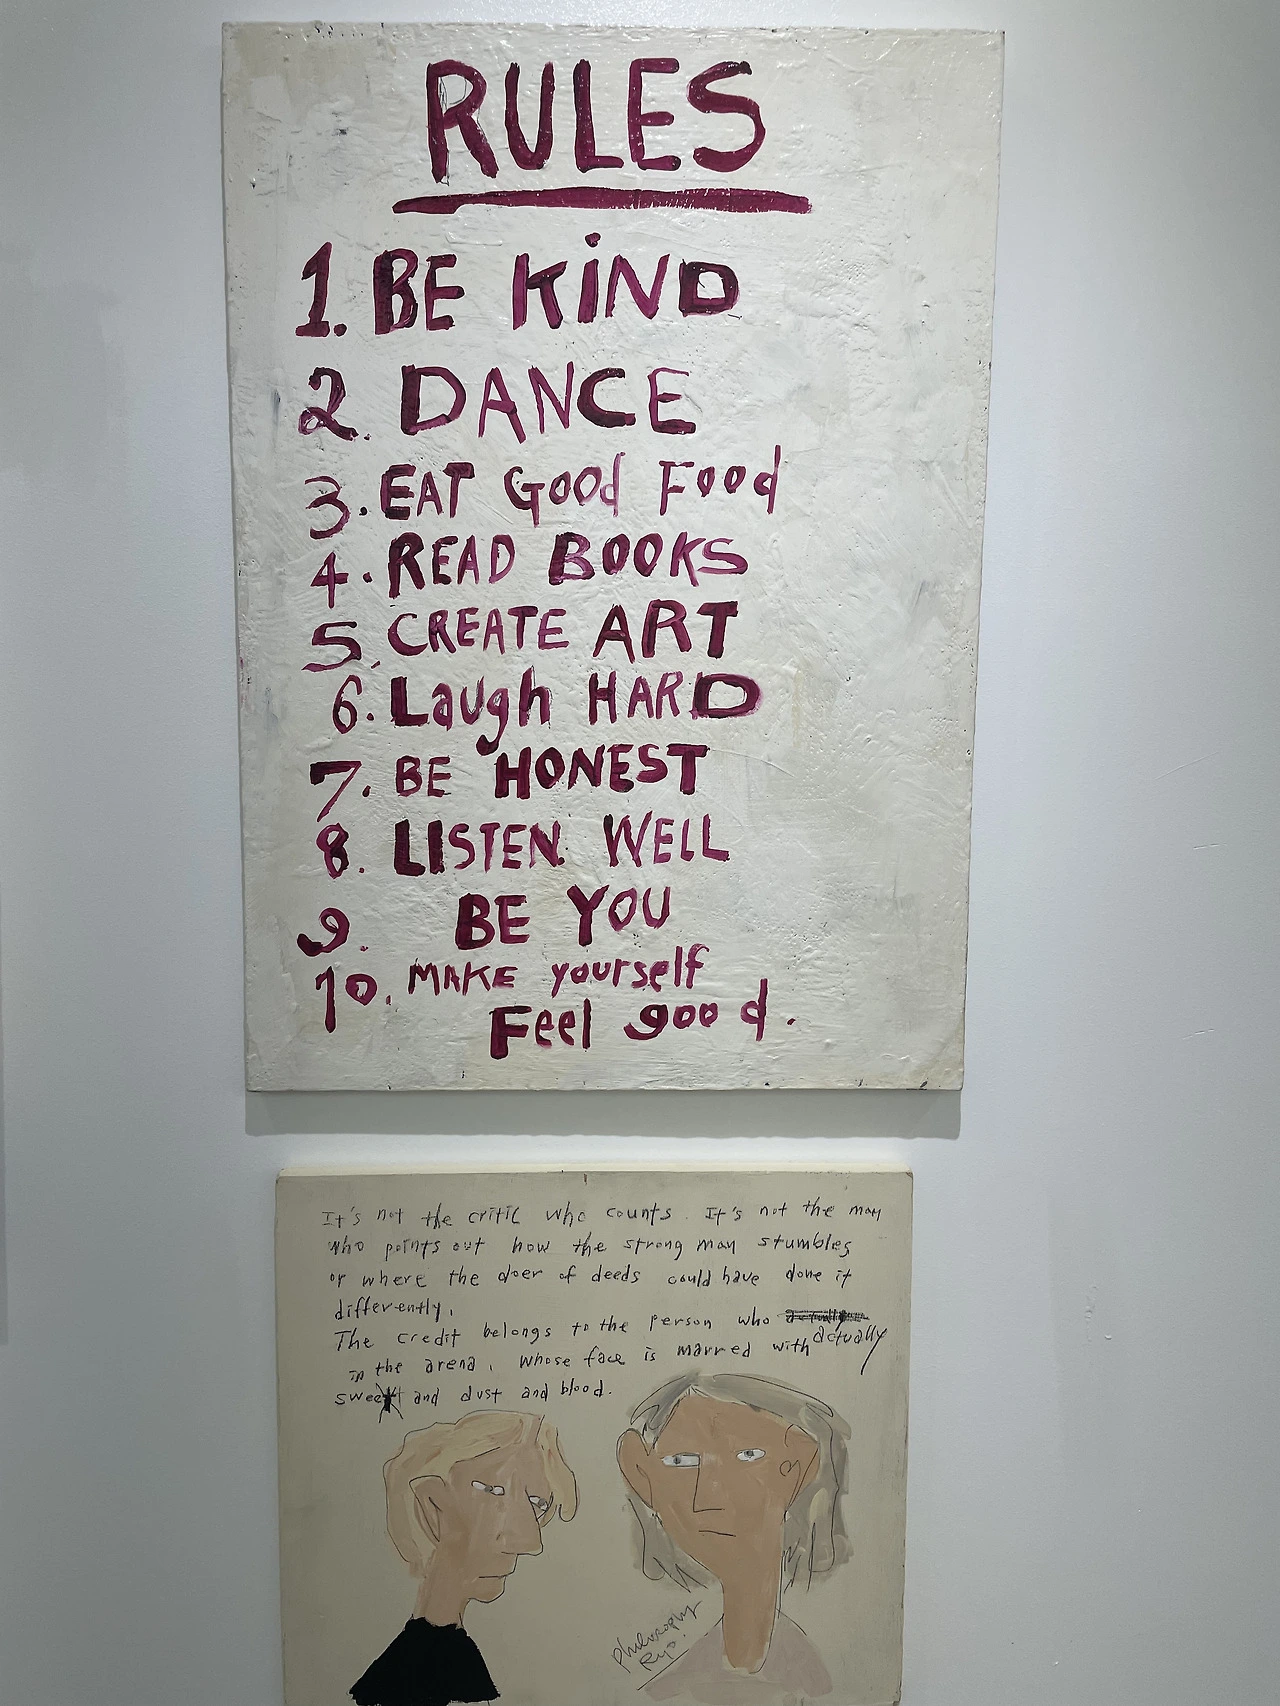 RULES
1. BE KiND
2. DANCE
3. EAT Good Food
4. READ BOOKS
5. CREATE ART
6. Laugh HARD
7. BE HONEST
8. LISTEN WELL
9. BE YOU
10. MAKE yourself
Feel good.
It's not the critic who counts. It's not the man
who points out how the strong man stumbles
or where the doer of deeds could have done it
differently.
The credit belongs to the person who actually
in the arena, whose face is marred with
sweat and dust and blood.
philosophy
Ryo.